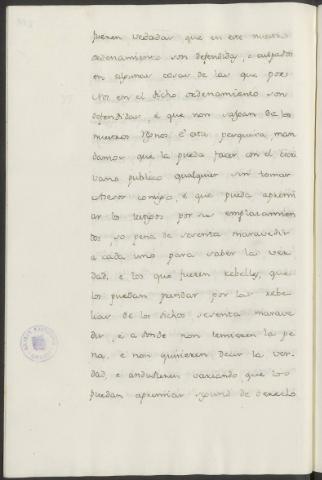 fueren vedadas que en este nuestro
ordenamiento son defendidas, e culpados
en algunas cosas de las que por
Nos en el dicho ordenamiento son
defendidas, e que non vayan de los
nuestros Regnos. E esta pesquisa man
damos que la pueda facer con el escri
vano publico qualquier sin tomar
Alcalde consigo, e que pueda apremi
ar los testigos por sus emplazamien
tos so pena de sesenta maravedis
a cada uno para saber la ver
dad, e los que fueren rebelles, que
los puedan prendar por las rebe
lias de los dichos sesenta marave
dis, e a donde non temieren la pe
na, e non quisieren decir la ver
dad, e andudieren variando que los
puedan apremiar segund de derecho